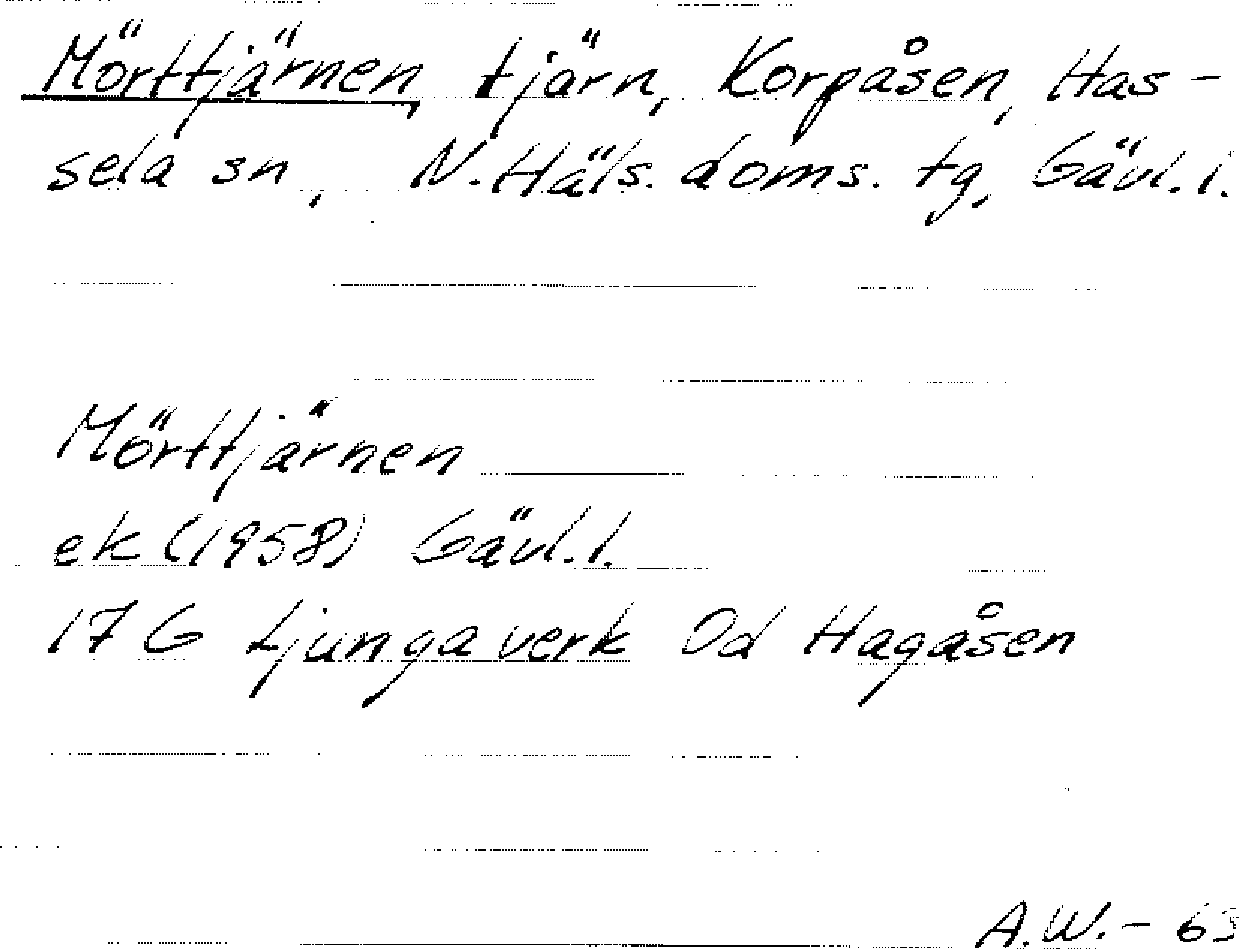 Mörttjärnen, tjärn, Korpåsen, Has-
sela sn, N. Häls. doms. tg, Gävl. l.
Mörttjärnen
ek (1958) Gävl. l.
17 G Ljungaverk 0d Hagåsen
A.W. - 63